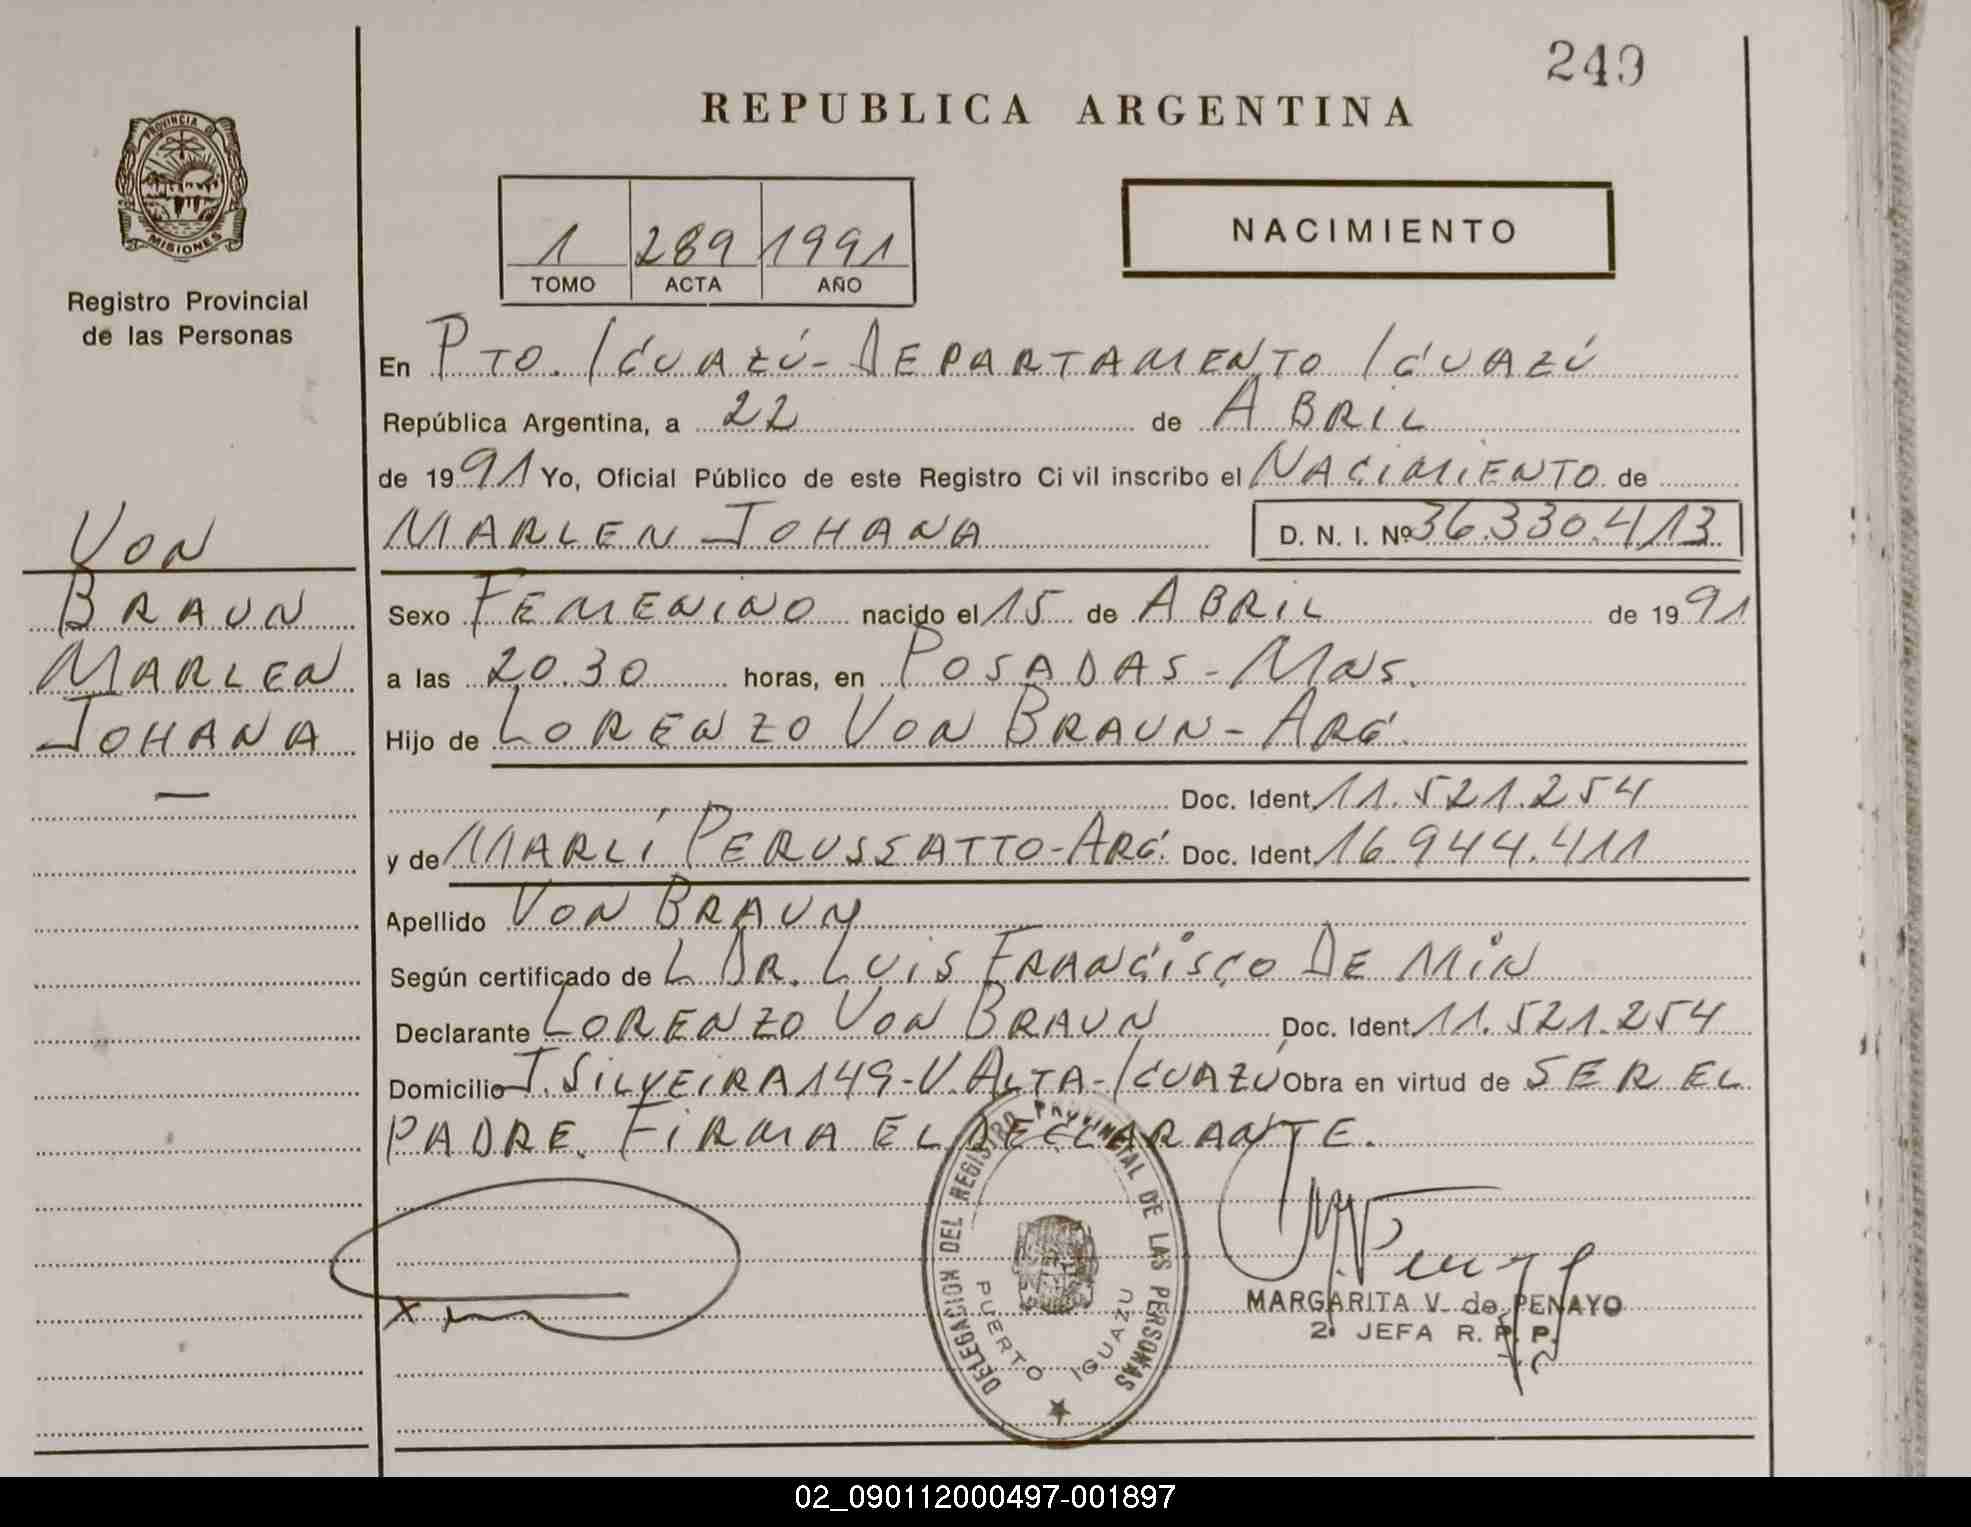 249
REPUBLICA ARGENTINA
PROVINCIA DE
MISIONES
Registro Provincial
de las Personas
1 289 1991
TOMO ACTA AÑO
NACIMIENTO
En PTO. IGUAZÚ - DEPARTAMENTO IGUAZÚ
República Argentina, a 22 de ABRIL
de 1991 Yo, Oficial Público de este Registro Civil inscribo el NACIMIENTO de
MARLEN JOHANA D. N. I. Nº 36.330.413
VON
BRAUN
MARLEN
JOHANA
—
Sexo FEMENINO nacido el 15 de ABRIL de 1991
a las 20.30 horas, en POSADAS - MNS.
Hijo de LORENZO VON BRAUN - ARG.
Doc. Ident. 11.521.254
y de MARLÍ PERUSSATTO - ARG. Doc. Ident. 16.944.411
Apellido VON BRAUN
Según certificado de L DR. LUIS FRANCISCO DE MIN
Declarante LORENZO VON BRAUN Doc. Ident. 11.521.254
Domicilio J. SILVEIRA 149 - V. ALTA - IGUAZÚ Obra en virtud de SER EL
PADRE. FIRMA EL DECLARANTE.
DELEGACION DEL REGISTRO PROVINCIAL DE LAS PERSONAS
PUERTO IGUAZU
X
MARGARITA V. de PENAYO
2ª JEFA R. P. P.
02_090112000497-001897